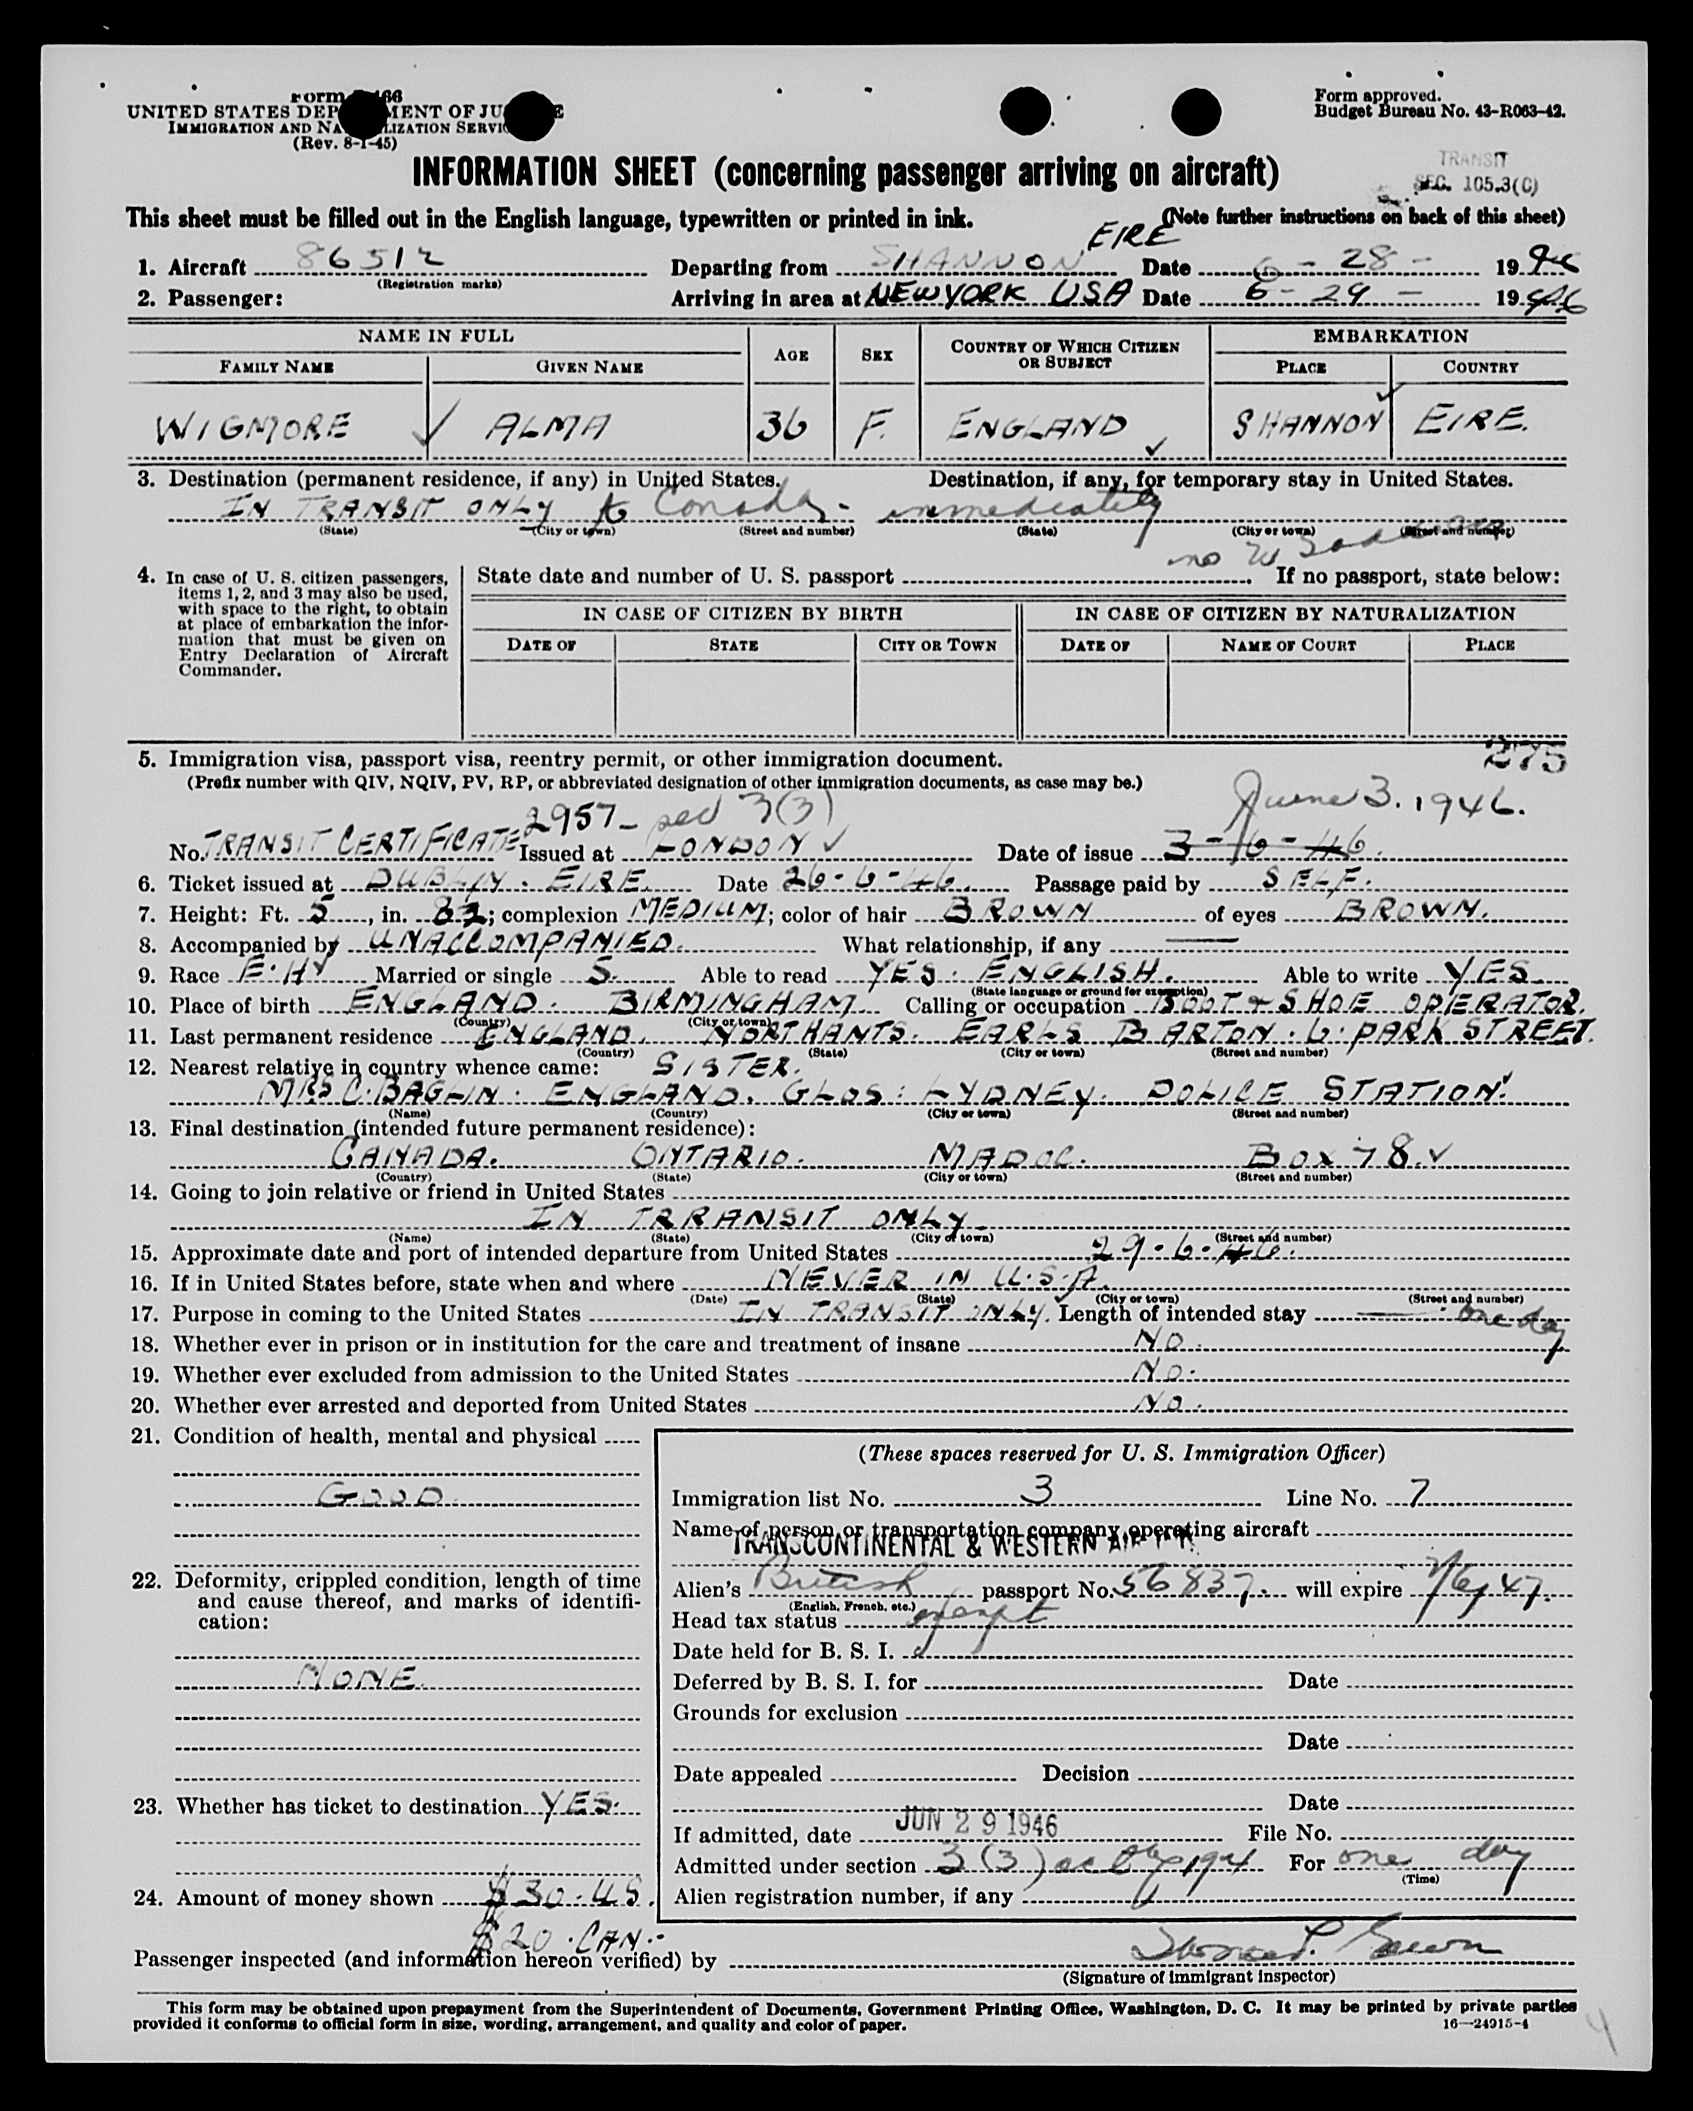 UNITED STATES DEP MENT OF JU E
IMMIGRATION AND NA LIZATION SERVIC
(Rev. 8-1-45)
Form approved.
Budget Bureau No. 43-R063-42.
INFORMATION SHEET (concerning passenger arriving on aircraft)
TRANSIT
SEC. 105.3(C)
This sheet must be filled out in the English language, typewritten or printed in ink. (Note further instructions on back of this sheet)
EIRE
1. Aircraft 86512 Departing from SHANNON Date 6-28- 1946
(Registration marks)
2. Passenger: Arriving in area at NEWYORK USA Date 6-29- 1946
NAME IN FULL AGE SEX COUNTRY OF WHICH CITIZEN OR SUBJECT EMBARKATION
FAMILY NAME GIVEN NAME PLACE COUNTRY
WIGMORE ✓ ALMA 36 F. ENGLAND ✓ SHANNON ✓ EIRE.
3. Destination (permanent residence, if any) in United States. Destination, if any, for temporary stay in United States.
IN TRANSIT ONLY to Canada - immediately
(State) (City or town) (Street and number) (State) (City or town) (Street and number)
no
4. In case of U. S. citizen passengers, items 1, 2, and 3 may also be used, with space to the right, to obtain at place of embarkation the information that must be given on Entry Declaration of Aircraft Commander.
State date and number of U. S. passport . If no passport, state below:
IN CASE OF CITIZEN BY BIRTH IN CASE OF CITIZEN BY NATURALIZATION
DATE OF STATE CITY OR TOWN DATE OF NAME OF COURT PLACE
275
5. Immigration visa, passport visa, reentry permit, or other immigration document.
(Prefix number with QIV, NQIV, PV, RP, or abbreviated designation of other immigration documents, as case may be.)
2957- sec 3(3) June 3. 1946.
No. TRANSIT CERTIFICATE Issued at LONDON ✓ Date of issue 3-6-46.
6. Ticket issued at DUBLIN. EIRE. Date 26-6-46. Passage paid by SELF.
7. Height: Ft. 5, in. 8½; complexion MEDIUM; color of hair BROWN of eyes BROWN.
8. Accompanied by UNACCOMPANIED. What relationship, if any —
9. Race E.H✓ Married or single S. Able to read YES. ENGLISH. Able to write YES
(State language or ground for exemption)
10. Place of birth ENGLAND. BIRMINGHAM. Calling or occupation BOOT & SHOE OPERATOR.
(Country) (City or town)
11. Last permanent residence ENGLAND. NORTHANTS. EARLS BARTON. 6. PARK STREET.
(Country) (State) (City or town) (Street and number)
12. Nearest relative in country whence came: SISTER.
MRS C. BAGLIN. ENGLAND. GLOS: LYDNEY. POLICE STATION.
(Name) (Country) (City or town) (Street and number)
13. Final destination (intended future permanent residence):
CANADA. ONTARIO. MADOC. BOX 78. ✓
(Country) (State) (City or town) (Street and number)
14. Going to join relative or friend in United States
IN TRRANSIT ONLY.
(Name) (State) (City or town) (Street and number)
15. Approximate date and port of intended departure from United States 29-6-46.
16. If in United States before, state when and where NEVER IN U.S.A.
(Date) (State) (City or town) (Street and number)
17. Purpose in coming to the United States IN TRANSIT ONLY. Length of intended stay one day
18. Whether ever in prison or in institution for the care and treatment of insane NO.
19. Whether ever excluded from admission to the United States NO.
20. Whether ever arrested and deported from United States NO.
21. Condition of health, mental and physical
GOOD.
22. Deformity, crippled condition, length of time and cause thereof, and marks of identification:
NONE.
23. Whether has ticket to destination YES.
24. Amount of money shown $30.US.
$20.CAN.
(These spaces reserved for U. S. Immigration Officer)
Immigration list No. 3 Line No. 7
Name of person or transportation company operating aircraft
TRANSCONTINENTAL & WESTERN AIR
Alien's British passport No. 56837. will expire 7/6/47.
(English, French, etc.)
Head tax status exempt
Date held for B. S. I.
Deferred by B. S. I. for Date
Grounds for exclusion
Date
Date appealed Decision
Date
If admitted, date JUN 29 1946 File No.
Admitted under section 3(3) act of 1924 For one day
(Time)
Alien registration number, if any
Passenger inspected (and information hereon verified) by
(Signature of Immigrant Inspector)
This form may be obtained upon prepayment from the Superintendent of Documents, Government Printing Office, Washington, D. C. It may be printed by private parties
provided it conforms to official form in size, wording, arrangement, and quality and color of paper. 16—24915-4
4